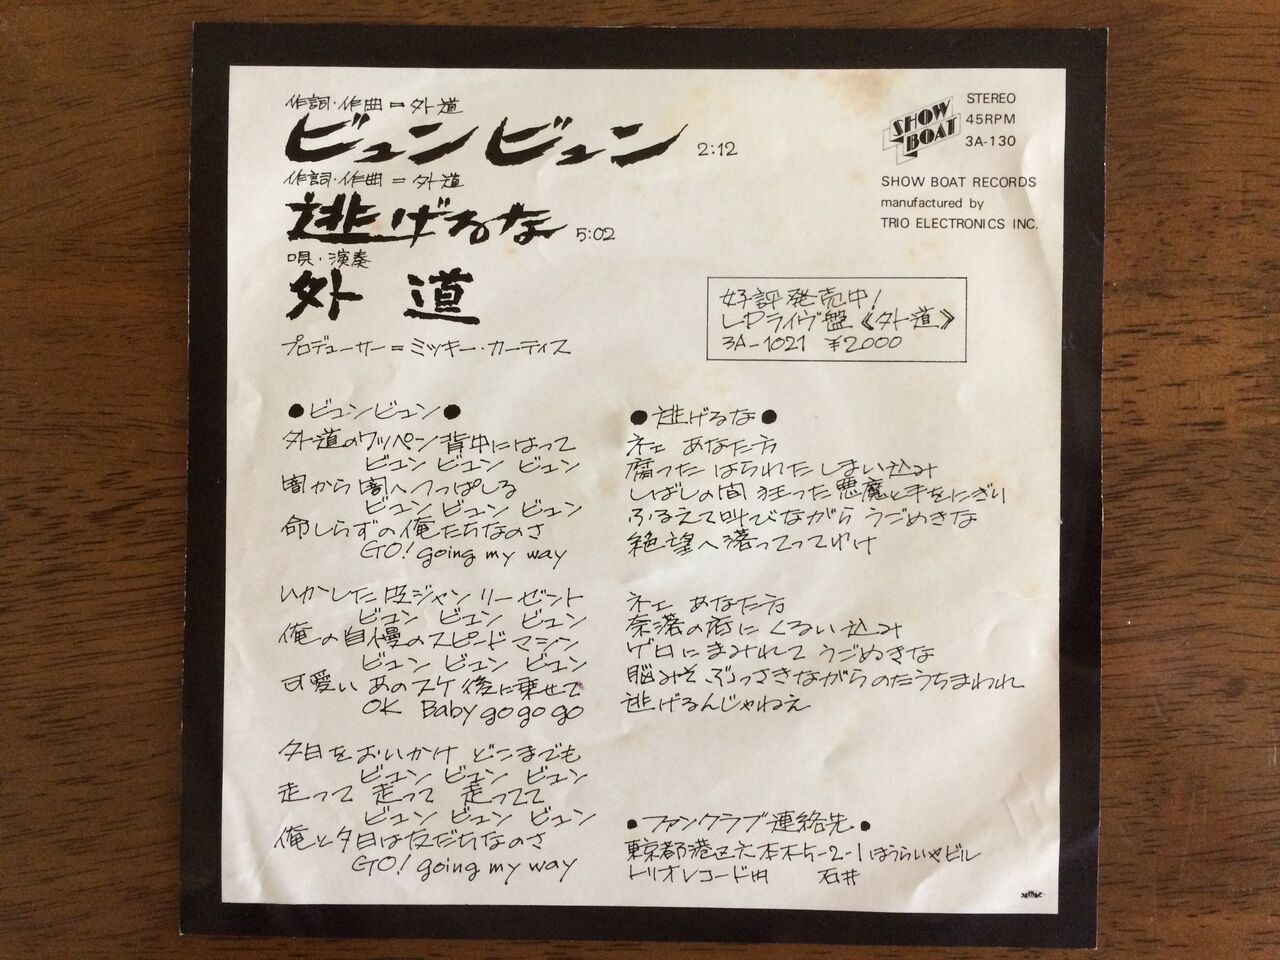 作詞・作曲＝外道
ビュンビュン 2:12
作詞・作曲＝外道
逃げるな 5:02
唄・演奏
外道
プロデューサー＝ミッキー・カーティス
SHOW BOAT
STEREO
45RPM
3A-130
SHOW BOAT RECORDS
manufactured by
TRIO ELECTRONICS INC.
好評発売中！
LPライヴ盤《外道》
3A-1021 ¥2000
●ビュンビュン●
外道のワッペン背中にはって
ビュン ビュン ビュン
闇から闇へつっぱしる
ビュン ビュン ビュン
命しらずの俺たちなのさ
GO! going my way
いかした皮ジャン リーゼント
ビュン ビュン ビュン
俺の自慢のスピードマシン
ビュン ビュン ビュン
可愛い あのスケ 後に乗せて
OK Baby go go go
夕日をおいかけ どこまでも
ビュン ビュン ビュン
走って 走って 走ってて
ビュン ビュン ビュン
俺と夕日は友だちなのさ
GO! going my way
●逃げるな●
ネェ あなた方
腐った はられた しまい込み
しばしの間 狂った悪魔と手をにぎり
ふるえて叫びながら うごめきな
絶望へ落ってってわけ
ネェ あなた方
奈落の底に くるい込み
ゲロにまみれて うごめきな
脳みそ ぶっさきながらのたうちまわれ
逃げるんじゃねえ
●ファンクラブ連絡先●
東京都港区六本木5-2-1ほうらいやビル
トリオレコード内 石井